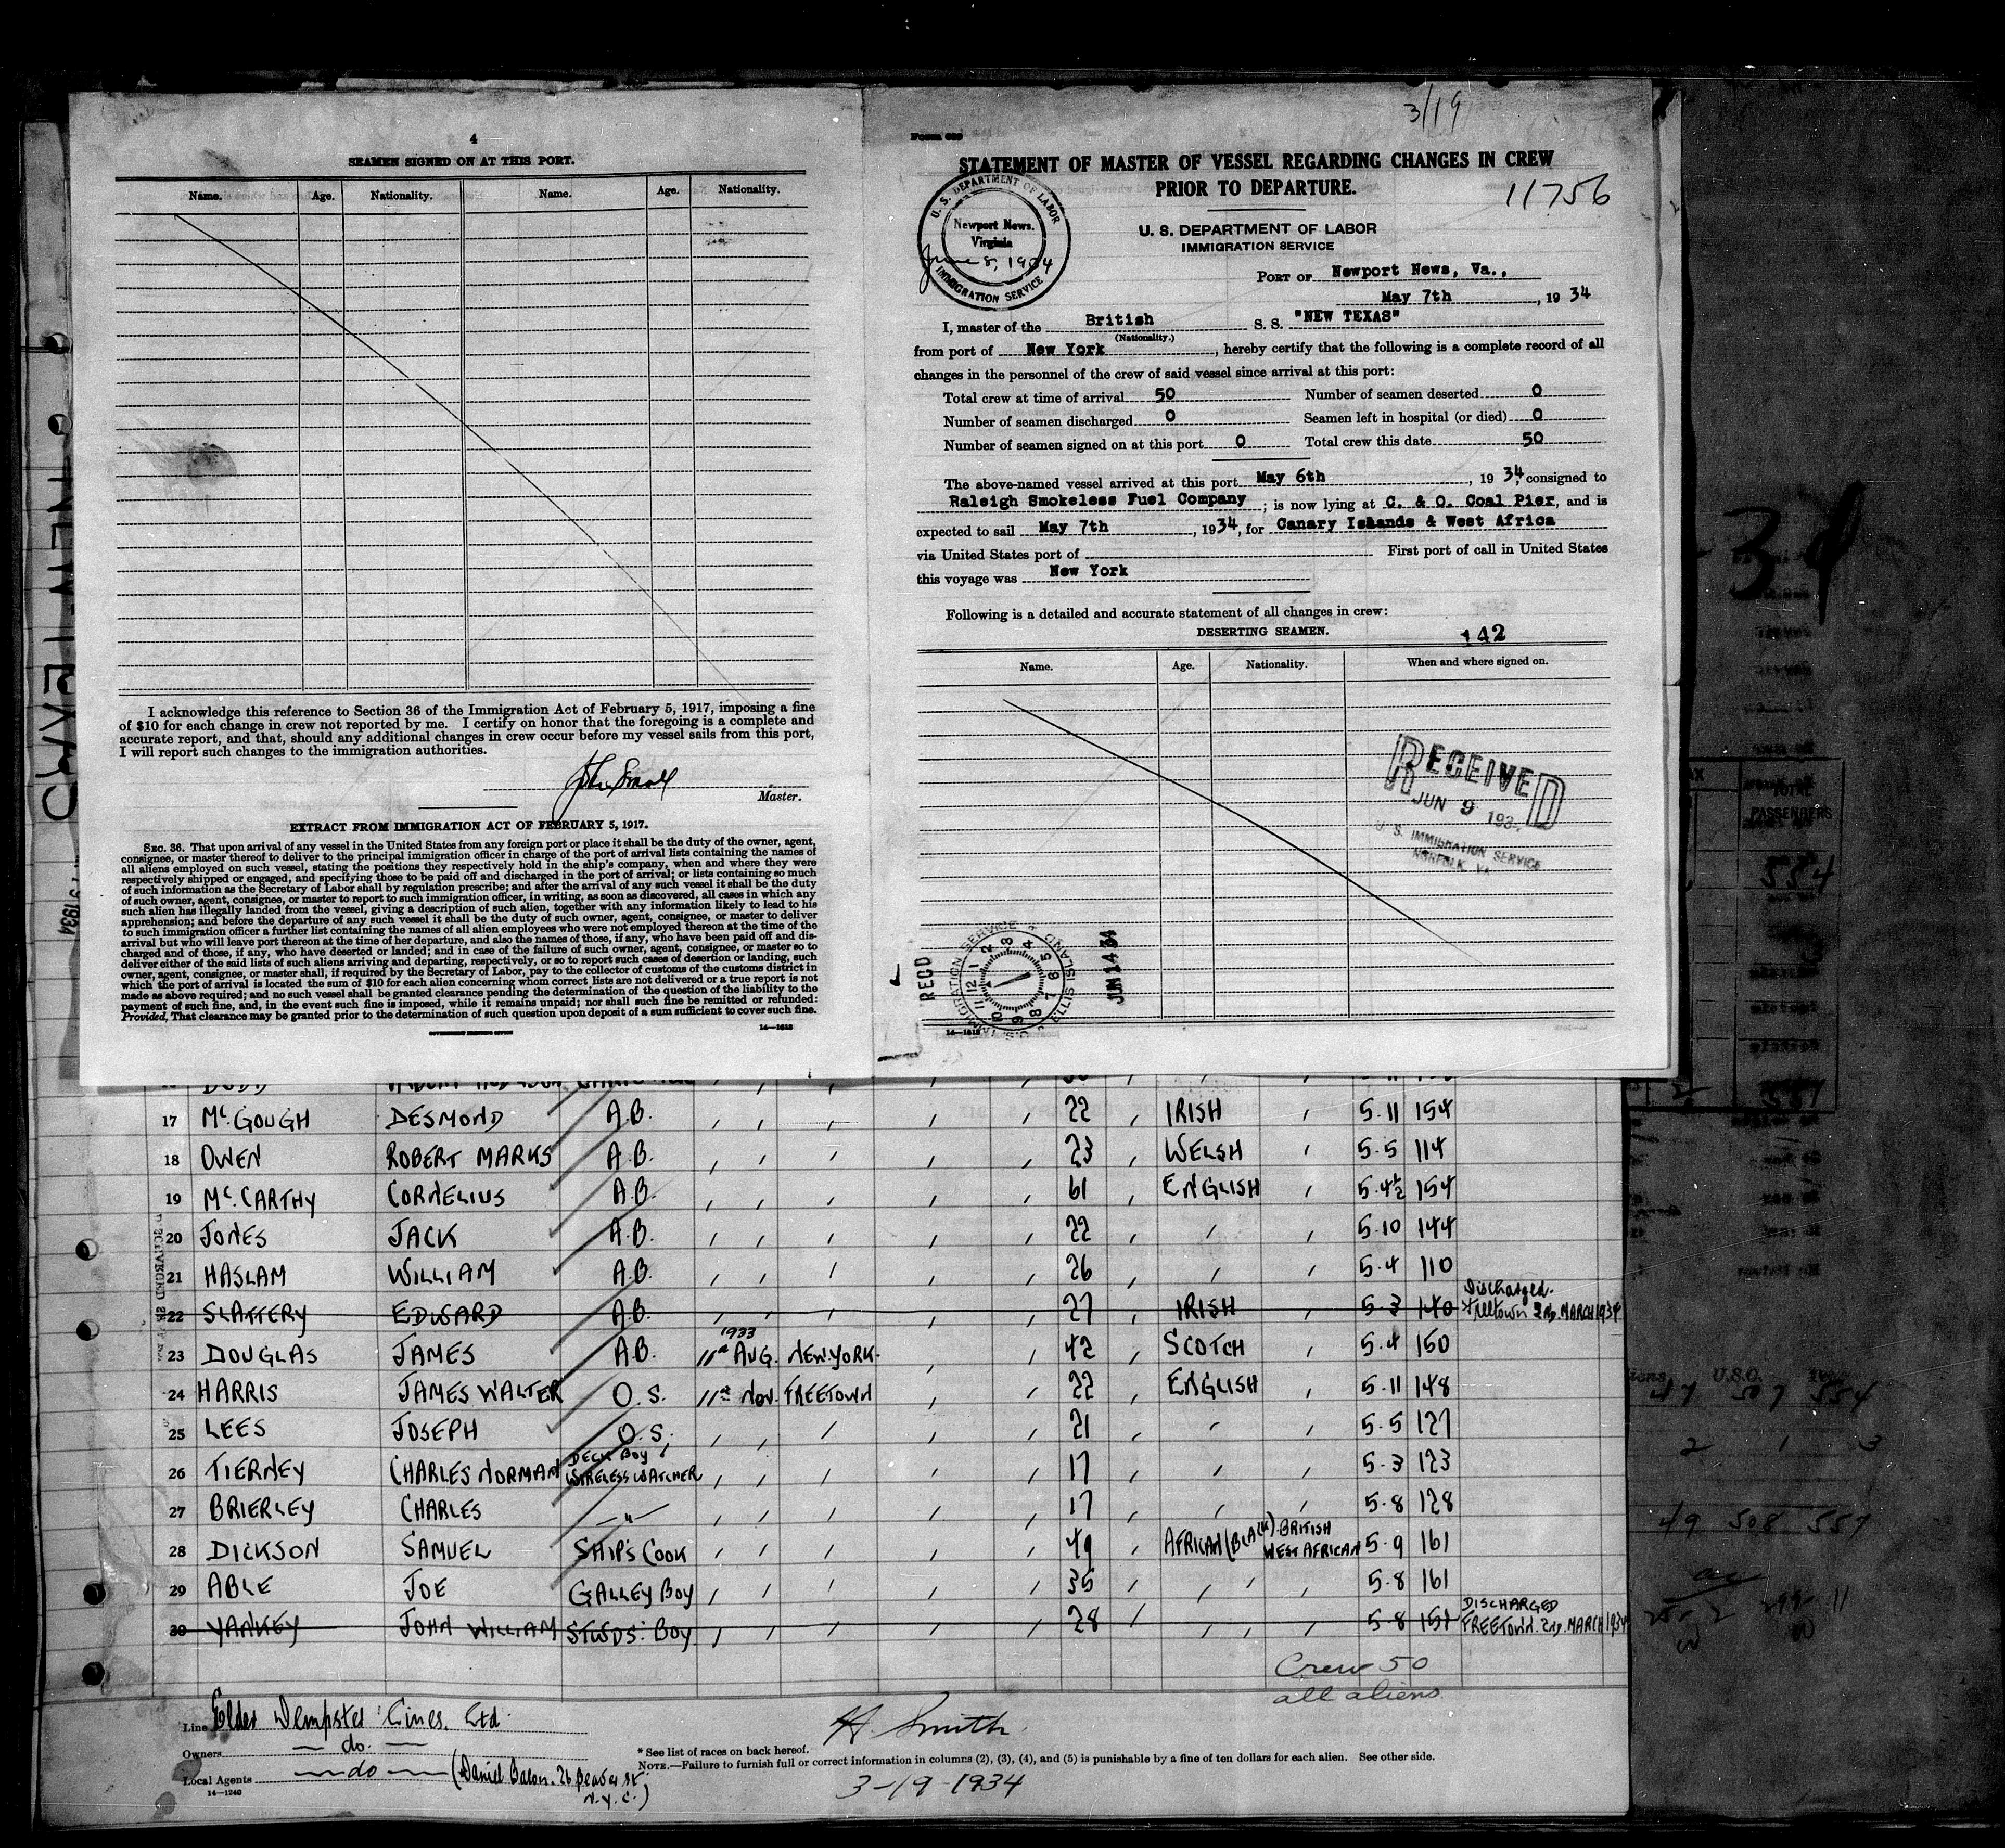 4
SEAMEN SIGNED ON AT THIS PORT.
Name. Age. Nationality. Name. Age. Nationality.
I acknowledge this reference to Section 36 of the Immigration Act of February 5, 1917, imposing a fine
of $10 for each change in crew not reported by me. I certify on honor that the foregoing is a complete and
accurate report, and that, should any additional changes in crew occur before my vessel sails from this port,
I will report such changes to the immigration authorities.
John Small
Master.
EXTRACT FROM IMMIGRATION ACT OF FEBRUARY 5, 1917.
SEC. 36. That upon arrival of any vessel in the United States from any foreign port or place it shall be the duty of the owner, agent,
consignee, or master thereof to deliver to the principal immigration officer in charge of the port of arrival lists containing the names of
all aliens employed on such vessel, stating the positions they respectively hold in the ship's company, when and where they were
respectively shipped or engaged, and specifying those to be paid off and discharged in the port of arrival; or lists containing so much
of such information as the Secretary of Labor shall by regulation prescribe; and after the arrival of any such vessel it shall be the duty
of such owner, agent, consignee, or master to report to such immigration officer, in writing, as soon as discovered, all cases in which any
such alien has illegally landed from the vessel, giving a description of such alien, together with any information likely to lead to his
apprehension; and before the departure of any such vessel it shall be the duty of such owner, agent, consignee, or master to deliver
to such immigration officer a further list containing the names of all alien employees who were not employed thereon at the time of the
arrival but who will leave port thereon at the time of her departure, and also the names of those, if any, who have been paid off and dis-
charged and of those, if any, who have deserted or landed; and in case of the failure of such owner, agent, consignee, or master so to
deliver either of the said lists of such aliens arriving and departing, respectively, or so to report such cases of desertion or landing, such
owner, agent, consignee, or master shall, if required by the Secretary of Labor, pay to the collector of customs of the customs district in
which the port of arrival is located the sum of $10 for each alien concerning whom correct lists are not delivered or a true report is not
made as above required; and no such vessel shall be granted clearance pending the determination of the question of the liability to the
payment of such fine, and, in the event such fine is imposed, while it remains unpaid; nor shall such fine be remitted or refunded:
Provided, That clearance may be granted prior to the determination of such question upon deposit of a sum sufficient to cover such fine.
GOVERNMENT PRINTING OFFICE
14—1618
3/19
Form 689
STATEMENT OF MASTER OF VESSEL REGARDING CHANGES IN CREW
PRIOR TO DEPARTURE.
11756
U. S. DEPARTMENT OF LABOR
IMMIGRATION SERVICE
Newport News,
Virginia
June 8, 1934
U. S. DEPARTMENT OF LABOR
IMMIGRATION SERVICE
PORT OF Newport News, Va.,
May 7th, 1934
I, master of the British S. S. "NEW TEXAS"
(Nationality.)
from port of New York, hereby certify that the following is a complete record of all
changes in the personnel of the crew of said vessel since arrival at this port:
Total crew at time of arrival 50 Number of seamen deserted 0
Number of seamen discharged 0 Seamen left in hospital (or died) 0
Number of seamen signed on at this port 0 Total crew this date 50
The above-named vessel arrived at this port May 6th, 1934, consigned to
Raleigh Smokeless Fuel Company; is now lying at C. & O. Coal Pier, and is
expected to sail May 7th, 1934, for Canary Islands & West Africa
via United States port of First port of call in United States
this voyage was New York
Following is a detailed and accurate statement of all changes in crew:
DESERTING SEAMEN. 142
Name. Age. Nationality. When and where signed on.
RECEIVED
JUN 9 193
U. S. IMMIGRATION SERVICE
NORFOLK VA
RECD
IMMIGRATION SERVICE
ELLIS ISLAND
JUN 14 34
14—1618
17 McGOUGH DESMOND A.B. 22 IRISH 5.11 154
18 OWEN ROBERT MARKS A.B. 23 WELSH 5.5 114
19 McCARTHY CORNELIUS A.B. 61 ENGLISH 5.4½ 154
20 JONES JACK A.B. 22 5.10 144
21 HASLAM WILLIAM A.B. 26 5.4 110
22 SLATTERY EDWARD A.B. 27 IRISH 5.3 140 Discharged Freetown 2nd MARCH 1934
23 DOUGLAS JAMES A.B. 1933 11th AUG. NEW YORK 42 SCOTCH 5.4 150
24 HARRIS JAMES WALTER O.S. 11th NOV. FREETOWN 22 ENGLISH 5.11 148
25 LEES JOSEPH O.S. 21 5.5 127
26 TIERNEY CHARLES NORMAN DECK BOY WIRELESS WATCHER 17 5.3 123
27 BRIERLEY CHARLES —"— 17 5.8 128
28 DICKSON SAMUEL SHIP'S COOK 49 AFRICAN (BLACK) BRITISH WEST AFRICAN 5.9 161
29 ABLE JOE GALLEY BOY 35 5.8 161
30 YANKEY JOHN WILLIAM STWDS: BOY 28 5.8 151 DISCHARGED FREETOWN. 2nd. MARCH 1934
Crew 50
all aliens.
Line Elder Dempster Lines. Ltd.
Owners — do. —
Local Agents — do — (Daniel Bacon. 26 Beaver St. N.Y.C.)
14—1240
H. Smith
* See list of races on back hereof.
NOTE.—Failure to furnish full or correct information in columns (2), (3), (4), and (5) is punishable by a fine of ten dollars for each alien. See other side.
3-19-1934
34
TOTAL
PASSENGERS
554
557
U.S.C.
47 507 554
2 1 3
49 508 557